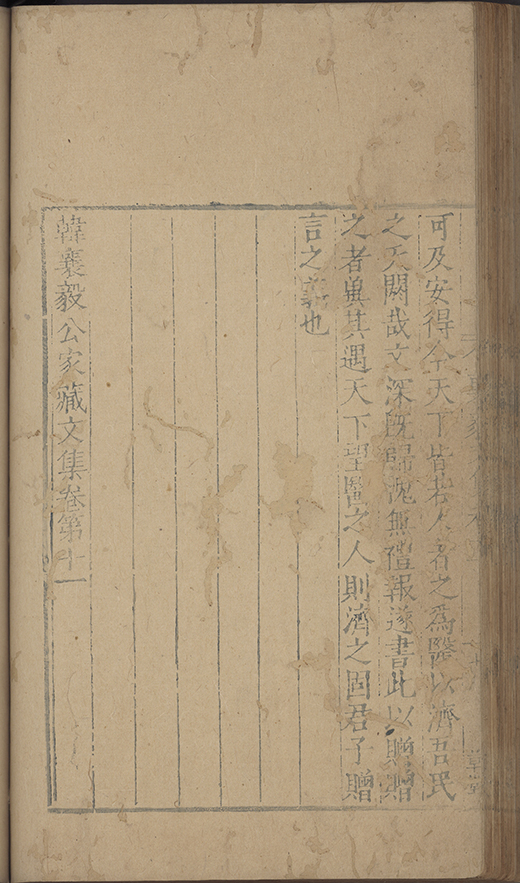 可及安得令天下皆若人者之為醫以濟吾民
之夭閼哉文深既歸愧無禮報遂書此以贈贈
之者冀其遇天下望醫之人則濟之固君子贈
言之義也
韓襄毅公家藏文集卷第十一